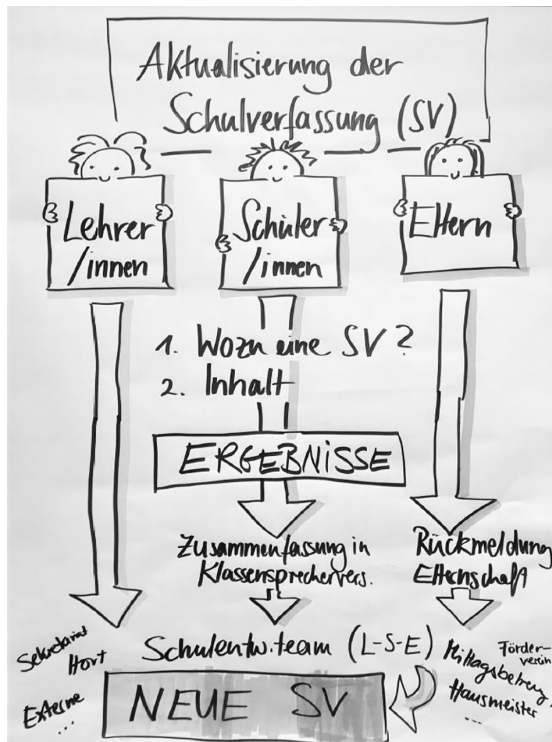 Aktualisierung der
Schulverfassung (SV)
Lehrer
/innen
Schüler
/innen
Eltern
1. Wozu eine SV?
2. Inhalt
ERGEBNISSE
Zusammenfassung in
Klassensprechervers.
Rückmeldung
Elternschaft
Schulentw.team (L-S-E)
Sekretariat
Hort
Externe
....
Mittagsbetreug.
Förder-
verein
Hausmeister
....
NEUE SV